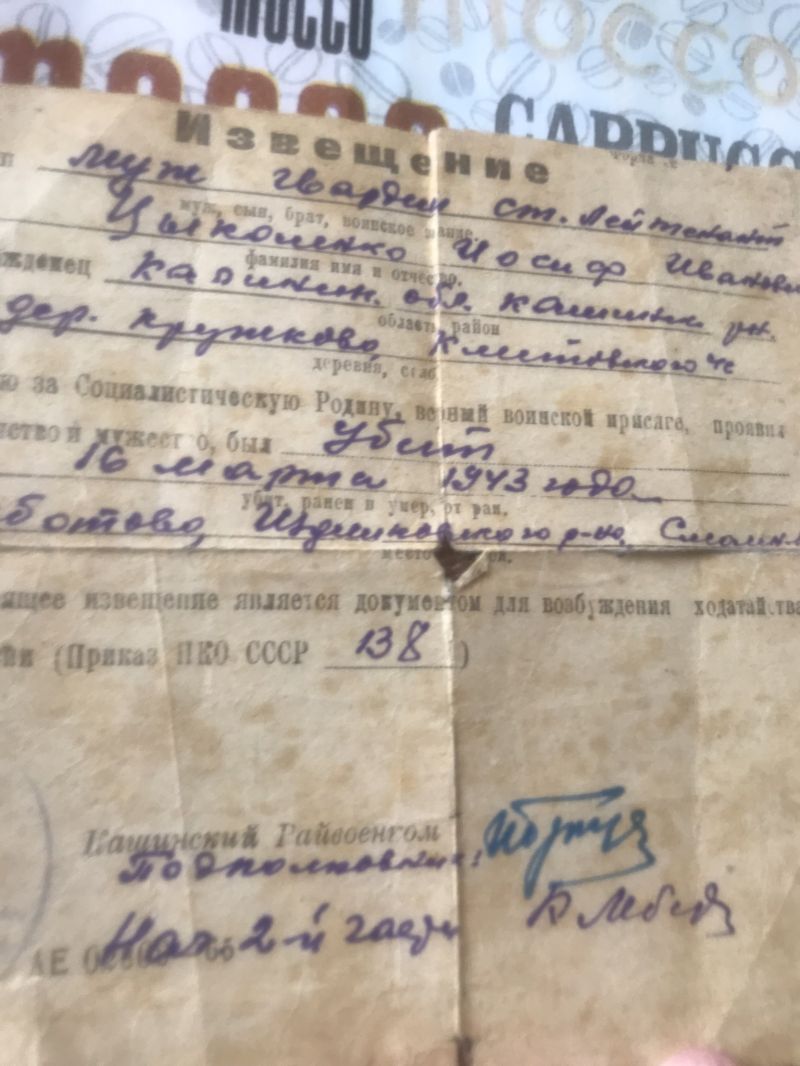 MOCCO
MOCCO
CAPPUCC
Извещение
муж гвардии ст. лейтенант
муж, сын, брат, воинское звание.
Цыколенко Иосиф Иванови
фамилия имя и отчество.
жденец Калинин. обл. Кашинск. рн.
область, район
дер. Кружково,
деревня, село
ю за Социалистическую Родину, верный воинской присяге, проявив
ство и мужество, был убит
16 марта 1943 года
убит, ранен и умер, от ран.
место
ящее извещение является документом для возбуждения ходатайства
(Приказ НКО СССР 138)
Кашинский Райвоенком
Подполковник:
Нач 2-й части
АЕ